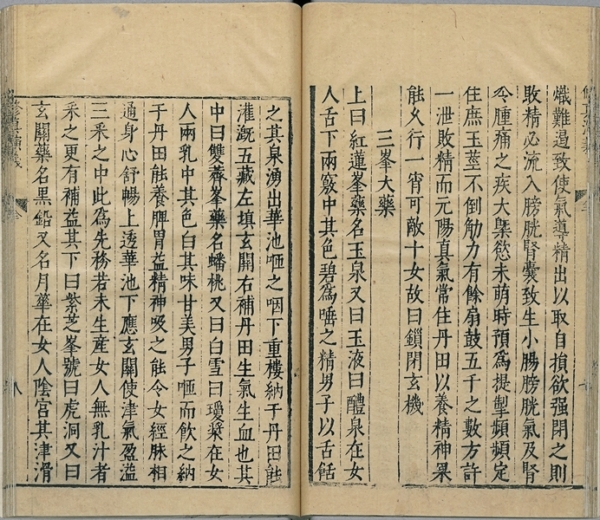 熾難遏致使氣導精出以取自損欲强閉之則
敗精必流入膀胱腎囊致生小腸膀胱氣及腎
冷腫痛之疾大槩慾未萌時預為提掣頻頻定
住庶玉莖不倒觔力有餘扇鼓五千之數方許
一泄敗精而元陽真氣常住丹田以養精神果
能久行一宵可敵十女故曰鎖閉玄機
三峯大藥
上曰紅蓮峯藥名玉泉又曰玉液曰醴泉在女
人舌下兩竅中其色碧為唾之精男子以舌餂
之其泉湧出華池咂之咽下重樓納于丹田能
灌溉五藏左填玄關右補丹田生氣生血也其
中曰雙薺峯藥名蟠桃又曰白雪曰瓊漿在女
人兩乳中其色白其味甘美男子咂而飲之納
于丹田能養脾胃益精神吸之能令女經脉相
通身心舒暢上透華池下應玄關使津氣盈溢
三釆之中此為先務若未生產女人無乳汁者
釆之更有補益其下曰紫芝峯號曰虎洞又曰
玄關藥名黑鉛又名月華在女人陰宮其津滑
修真演義
八